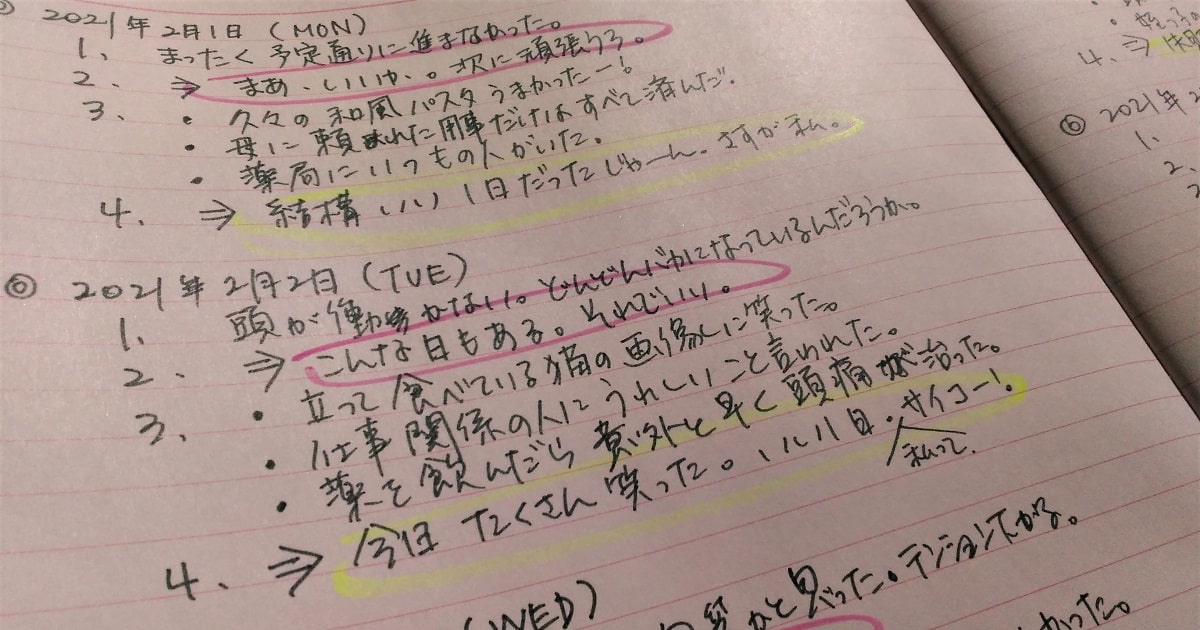 ◎ 2021年2月1日 (MON)
1. まったく予定通りに進まなかった。
2. ⇒ まあ、いいや。次に頑張ろう。
3. ・久々の和風パスタうまかったー!
・母に頼まれた用事だけはすべて済んだ。
・薬局にいつもの人がいた。
4. ⇒ 結構いい1日だったじゃーん。さすが私。
◎ 2021年2月2日 (TUE)
1. 頭が働かない。どんどんバカになっているんだろうか。
2. ⇒ こんな日もある。それでいい。
3. ・立って食べている猫の画像に笑った。
・仕事関係の人にうれしいこと言われた。
・薬を飲んだら意外と早く頭痛が治った。
4. ⇒ 今日たくさん笑った。いい日。サイコー!
私って、
(WED)
かと思った。テンション下がる。
かった。
4. ⇒
◎ 2021年2
1.
2.